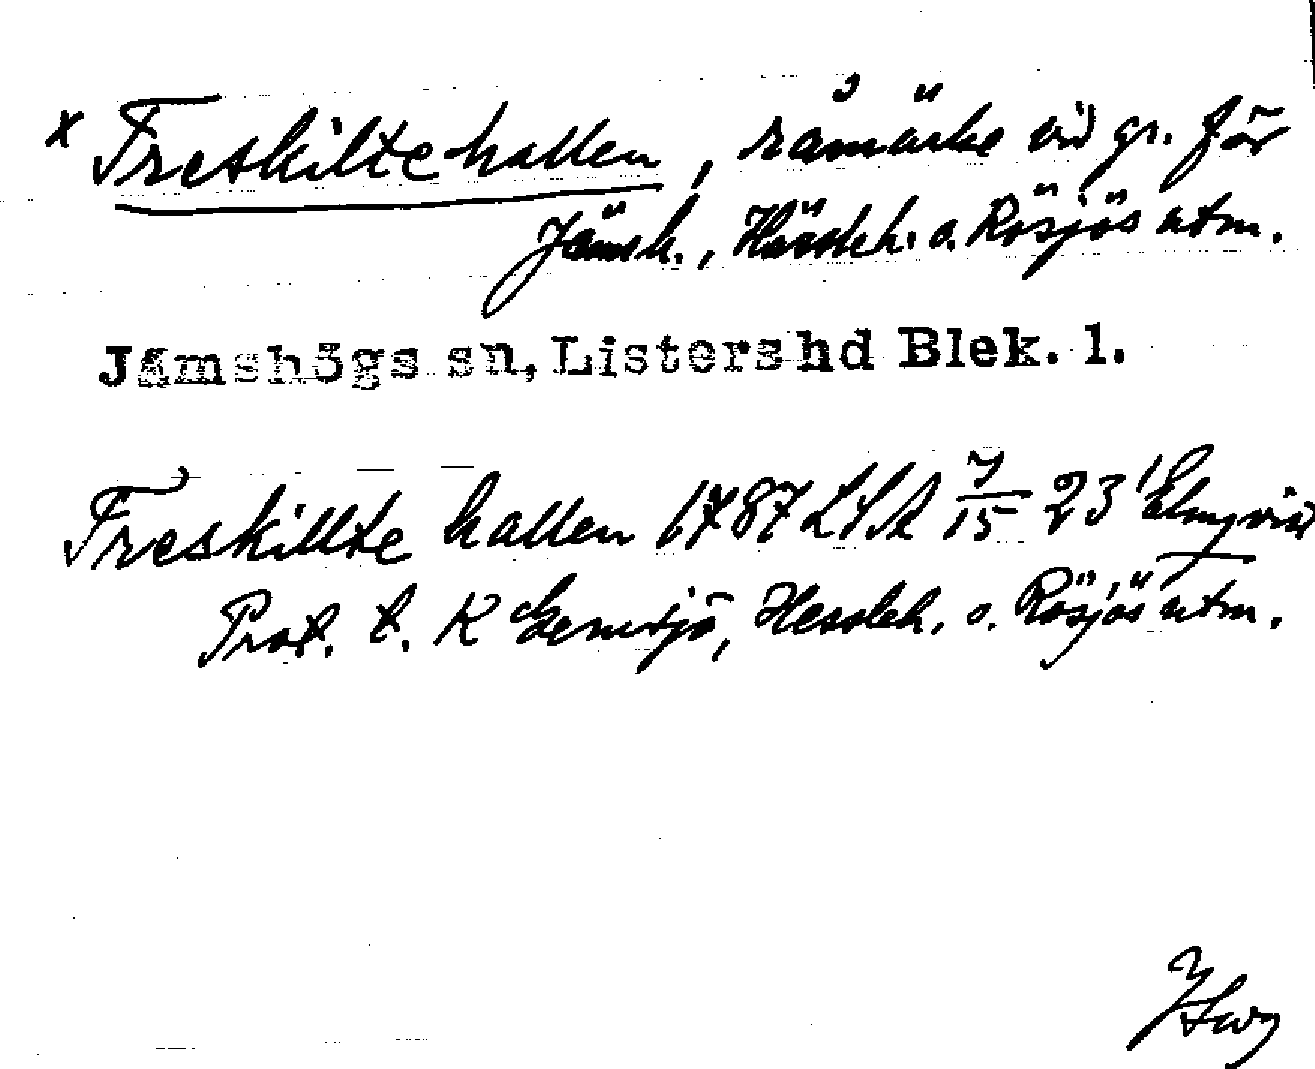 x Treskiltehallen, råmärke vid gr. för
Jämsh., Härsleh. o. Rösjös utm.
Jämshögs sn, Listers hd Blek. l.
Treskillte hallen 1787 LSA 7/15 23 Elmqvist
Prot. t. K Gemsjö, Hesleh. o. Rösjös utm.